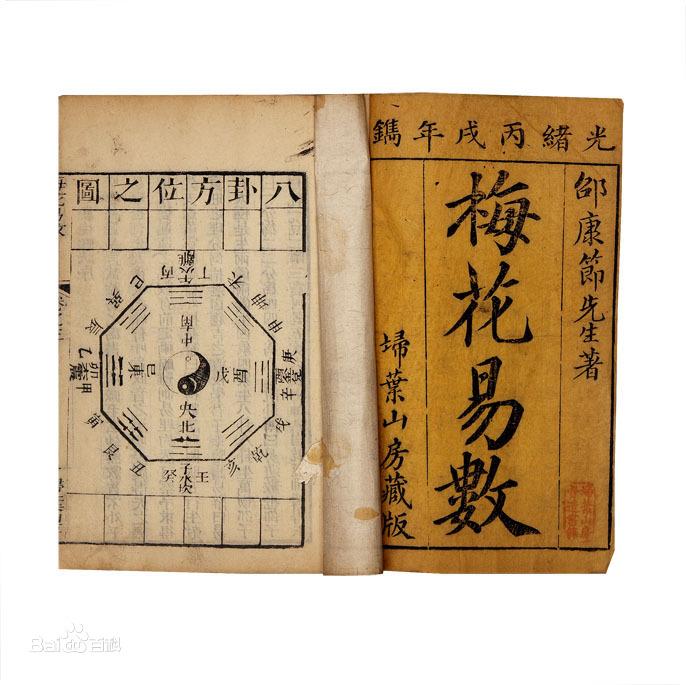 光緒丙戌年鐫
邵康節先生著
梅花易數
埽葉山房藏版
八卦方位之圖
丁火離午丙
未坤申
巳巽辰
南中
乙卯
甲
東
巳
戊
酉
庚
辛
央北
寅艮丑
戌乾亥
癸子水坎壬
Bai百科